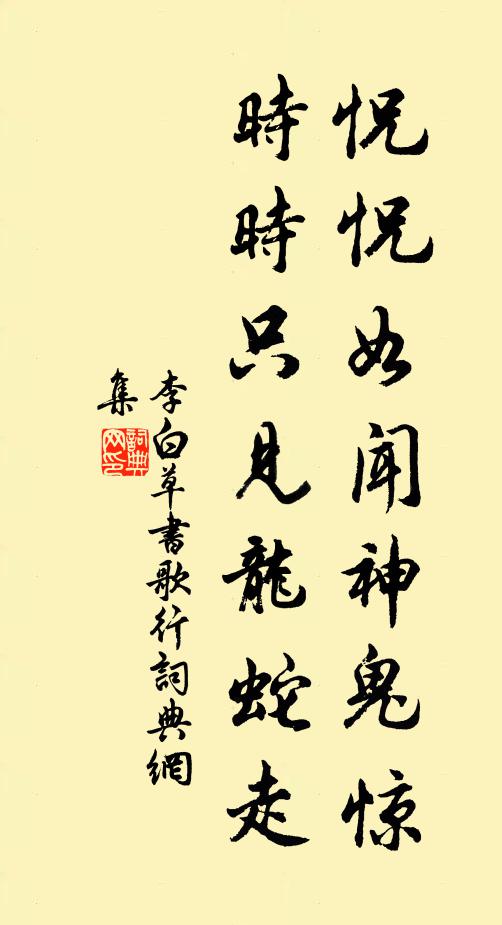 怳怳如闻神鬼惊
時時只見龍蛇走
李白草書歌行詞典網
集
詞典网印